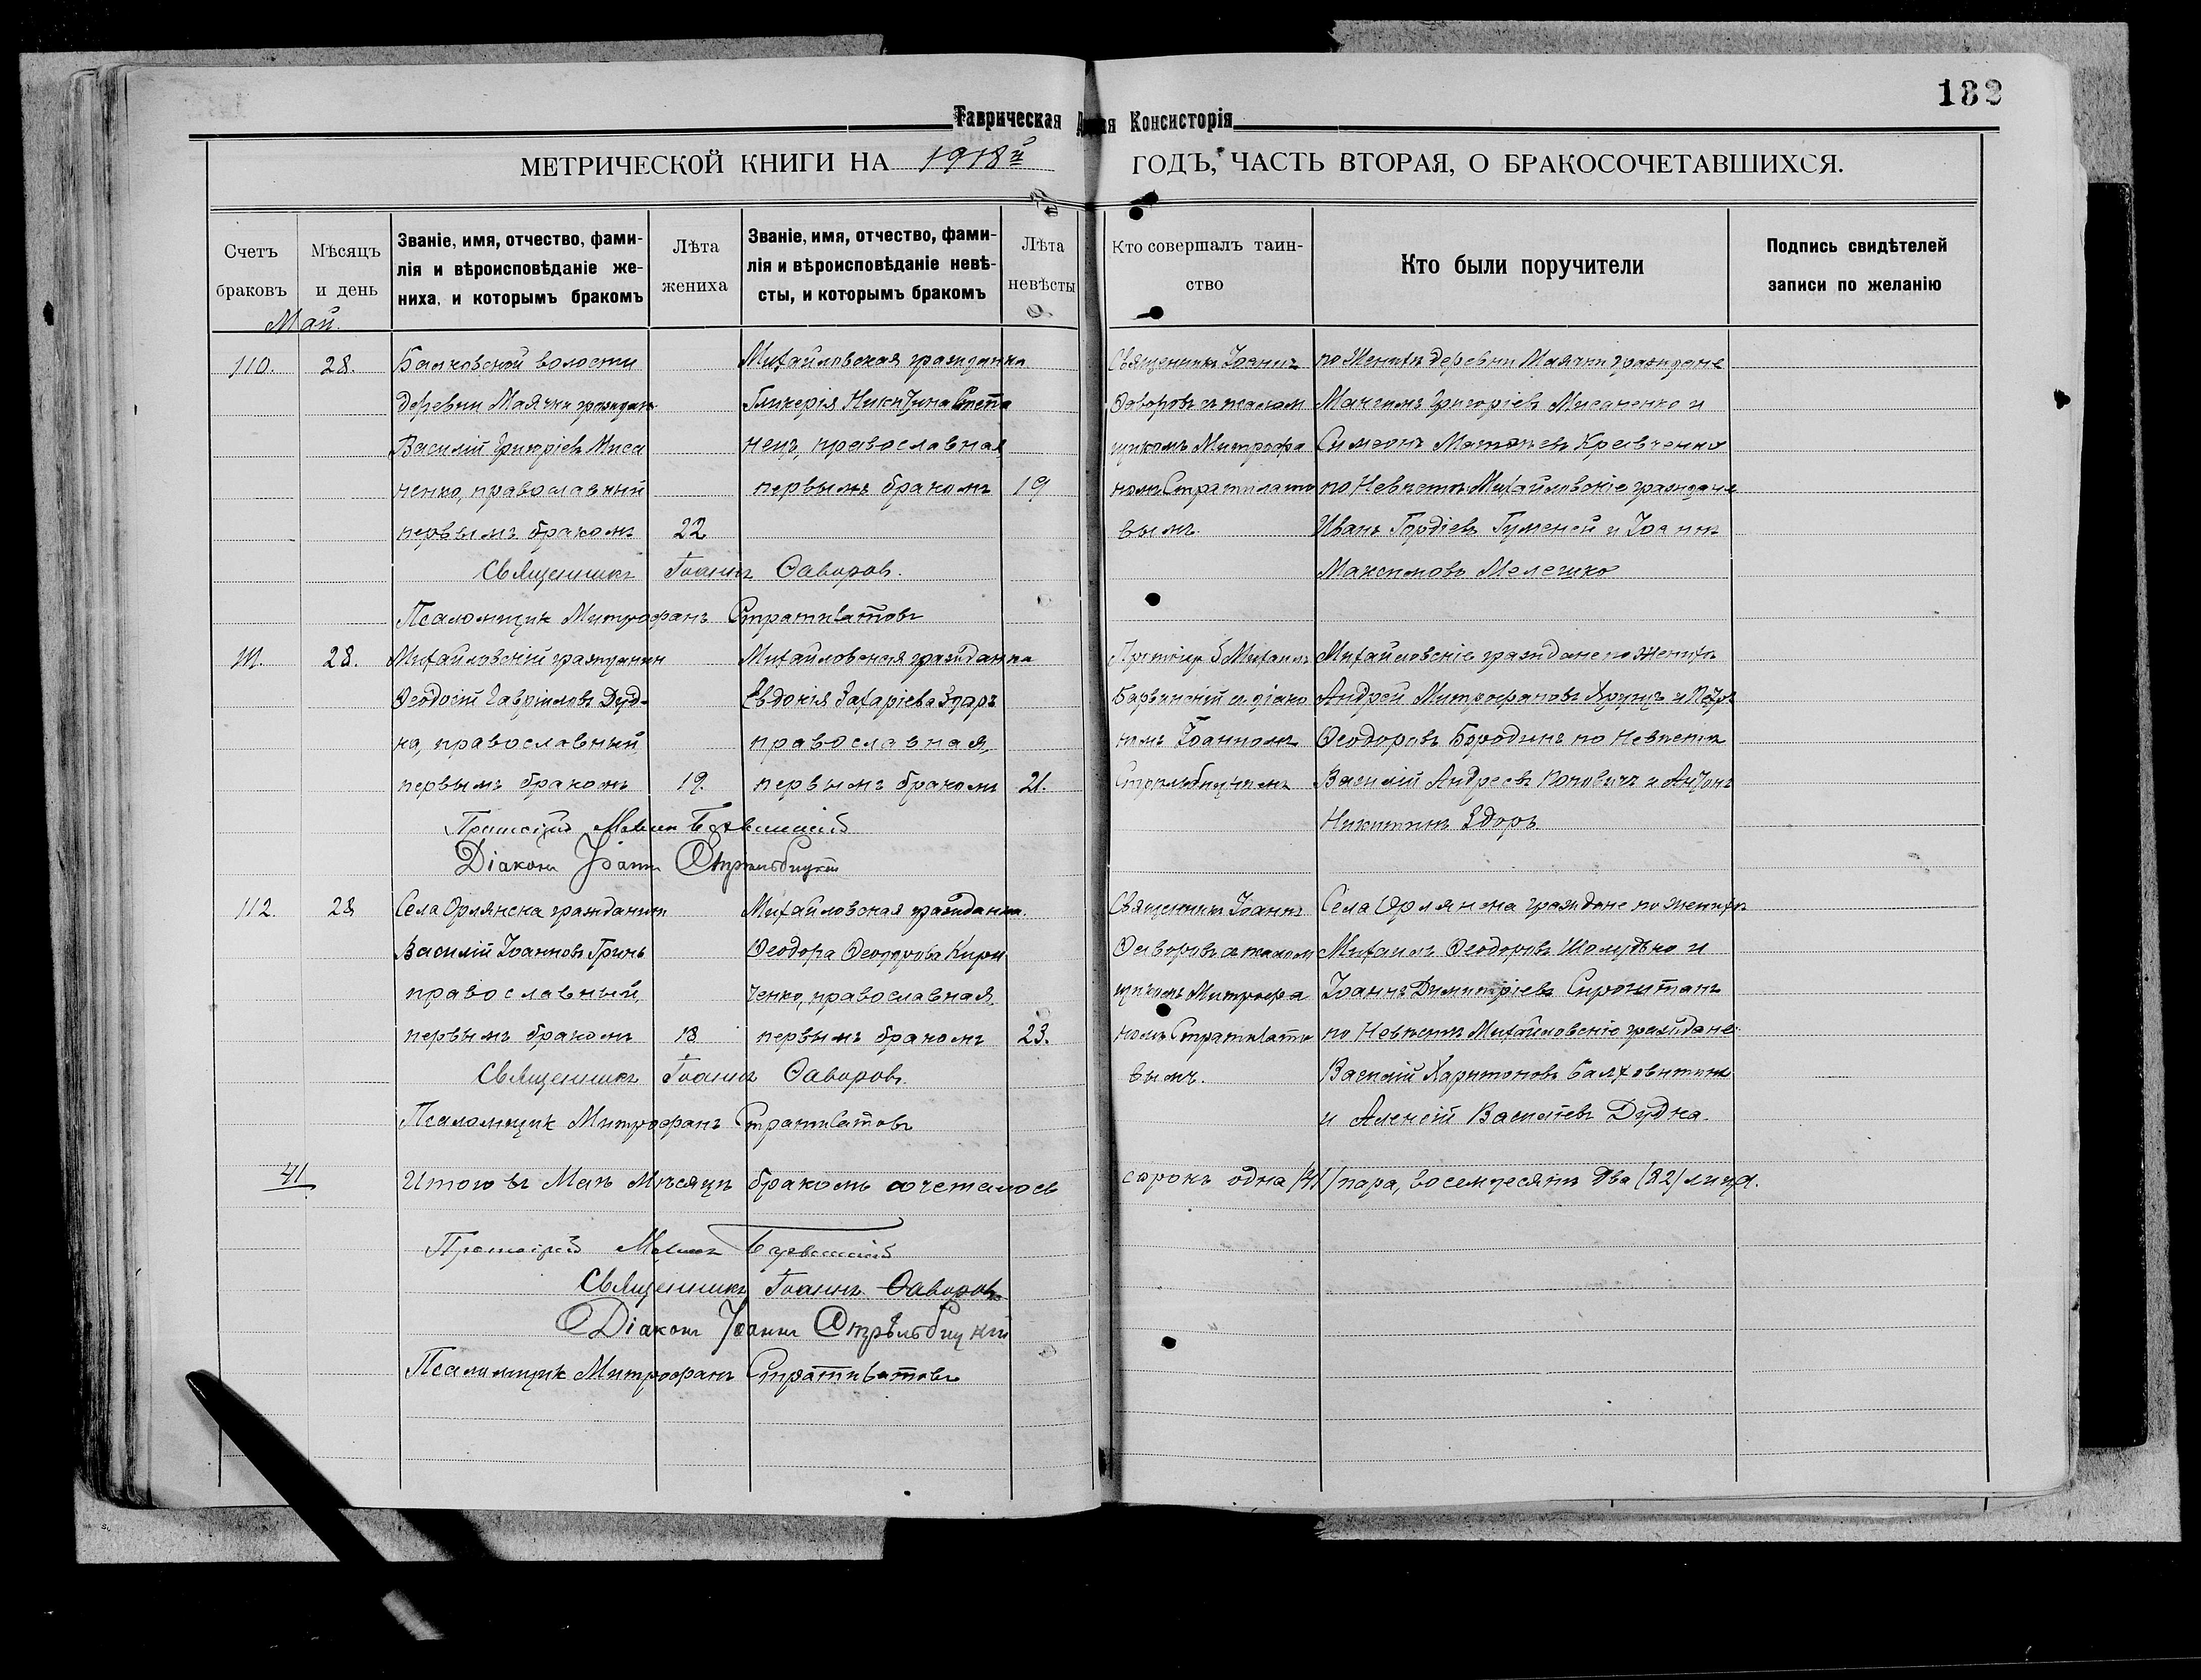 132
Таврическая Консисторія
МЕТРИЧЕСКОЙ КНИГИ НА 1918й ГОДЪ, ЧАСТЬ ВТОРАЯ, О БРАКОСОЧЕТАВШИХСЯ.
Счетъ браковъ
Мѣсяцъ и день
Званіе, имя, отчество, фами-
лія и вѣроисповѣданіе же-
ниха, и которымъ бракомъ
Лѣта жениха
Званіе, имя, отчество, фами-
лія и вѣроисповѣданіе невѣ-
сты, и которымъ бракомъ
Лѣта невѣсты
Кто совершалъ таин-
ство
Кто были поручители
Подпись свидѣтелей
записи по желанію
Май.
110.
28.
волости
деревни Маячки граждан.
Василій Григоріевъ Миса
ченко, православный
первымъ бракомъ
22
Михайловская гражданка
Гликерія Никитина Степа
нецъ, православная
первымъ бракомъ
19
Священникъ Іоаннъ
Ѳаворовъ съ псалом
щикомъ Митрофа
номъ Стратилато
вымъ
по Женихѣ деревни Маячки граждане
Максимъ Григоріевъ Мисаченко и
Симеонъ Матѳѣевъ Кравченко
по Невѣстѣ Михайловскіе граждане
Иванъ Гордіевъ Гуменей и Іоаннъ
Максимовъ Мелешко
Священникъ Іоаннъ Ѳаворов.
Псаломщик Митрофанъ Стратилатовъ
111.
28.
Михайловскій гражданин
Ѳеодосій Гавріиловъ Дуд-
ка, православный
первымъ бракомъ
19.
Михайловская гражданка
Евдокія Захаріева Здоръ
православная,
первымъ бракомъ
21.
Протоіер. Михаилъ
Барвинскій съ діако
номъ Іоанномъ
Стрѣльбицкимъ
Михайловскіе граждане по Женихѣ
Андрей Митрофановъ и Петръ
Ѳеодоровъ Бородинъ по Невѣстѣ
Василій Андреевъ и Антонъ
Никитинъ Здоръ
Протоіерей
Діаконъ Іоаннъ Стрѣльбицкій
112.
28
Села Орлянска гражданин
Василій Іоанновъ Гринь
православный,
первымъ бракомъ
18
Михайловская гражданка.
Ѳеодора Ѳеодорова Кири
ченко, православная
первымъ бракомъ
23.
Священникъ Іоаннъ
Ѳаворовъ съ псалом
щикомъ Митрофа
номъ Стратилато
вымъ.
Села Орлянска граждане по женихѣ
Михаилъ Ѳеодоровъ Шолудько и
Іоаннъ Димитріевъ
по Невѣстѣ Михайловскіе граждане
Василій Харитоновъ
и Алексій Василіевъ Дудка.
Священникъ Іоаннъ Ѳаворовъ.
Псаломщик Митрофанъ Стратилатовъ
41
Итого въ Маѣ Мѣсяцѣ бракомъ сочеталось сорокъ одна /41/ пара, восемдесятъ два (82) лица.
Протоіерей
Священникъ Іоаннъ Ѳаворовъ
Діаконъ Іоаннъ Стрѣльбицкій
Псаломщик Митрофанъ Стратилатовъ